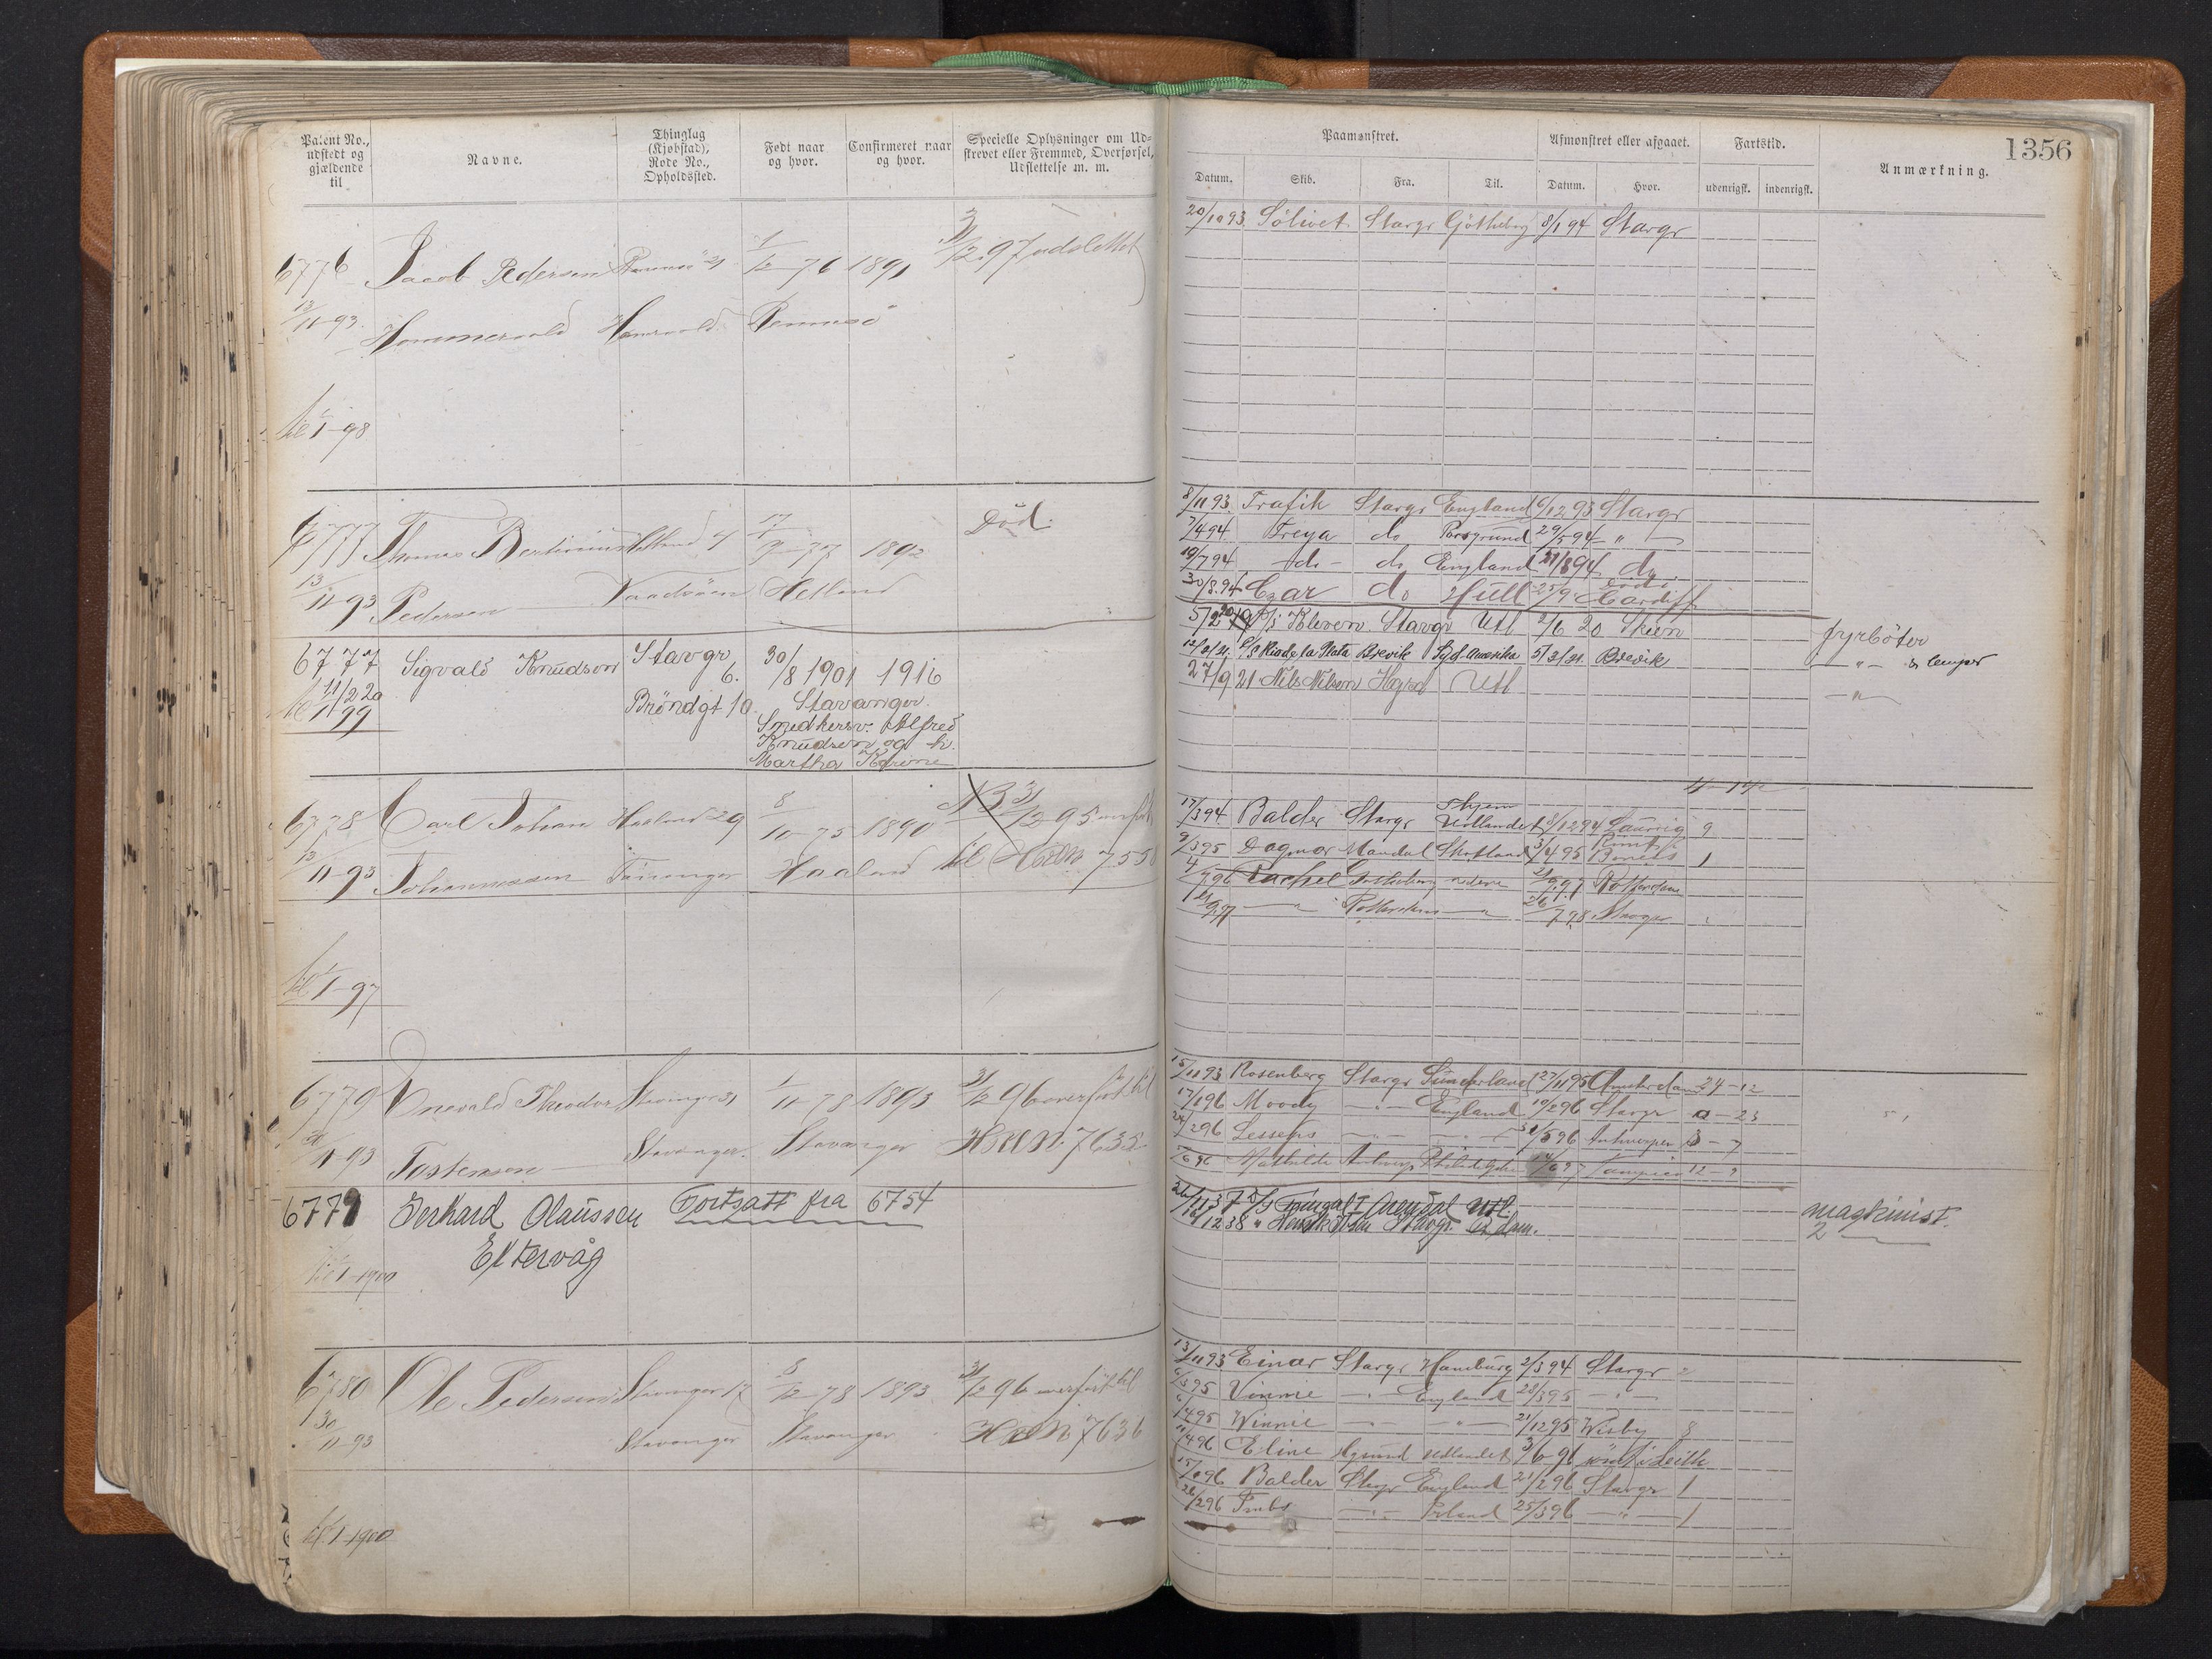 Patent No., udstedt og gjældende til
Navne.
Thinglag (Kjøbstad), Rode No., Opholdssted.
Født naar og hvor.
Confirmeret naar og hvor.
Specielle Oplysninger om Udskrevet eller Fremmed, Overførsel, Udslettelse m. m.
6776 Jacob Pedersen 21 1/2-76 1891 31/12 97 udslettet
13/11-93. Hommersold Rennesö
til 1/1-98
6777 Thomas Bertinius Hetland 4 17/9-77 1892 Död.
13/11-93 Pedersen Hetland
6777 Sigvald Knudsen Stavgr 6. 30/8 1901 1916
11/2 20
Bröndgt 10. Stavanger.
til 1/1 99
Snedkersv. Alfred
Knudsen og h.
Martha Karine
6778 Carl Johan Haaland 29 8/10-75 1890 NB 31/12 95 overfört
13/11-93 Johannessen Haaland til 755
til 1/1-97
6779 Enevald Theodor Stavanger 31 1/11-78 1893 31/12 96 overfört til
30/11-93 Tostensen Stavanger. Stavanger 7635
6779 Gerhard Olaussen Fortsatt fra 6754
Eltervåg
til 1/1-1900
6780 Ole Pedersen Stavanger 17 8/12-78 1893. 31/12 96 overfört til
30/11-93 Stavanger Stavanger 7636
til 1/1-1900
1356
Paamønstret.
Afmønstret eller afgaaet.
Fartstid.
Anmærkning.
Datum. Skib. Fra. Til. Datum. Hvor. udenrigsk. indenrigsk.
20/10 93. Sölivet Stavgr Götheborg 8/1 94 Stavgr
8/11 93. Trafik Stavgr England 6/12 93 Stavgr
7/4 94 Freya do Porsgrund 29/5 94 - " -
19/7 94 - do - do England 21/8 94 do
30/8. 94 Czar do Hull 25/9 död i Cardiff
5/2 20 S/S Kleven. Stavgr Utl 2/6 20 Skien fyrböter
S/S Rio de la Plata Brevik Syd. Amerika 5/2/21. Brevik - " - & lemper
27/9 21 Nils Nilsen Hgsd Utl - " -
4-14
17/3 94 Balder Stavgr Udlandet 8/12 94 Laurvig 9
9/3 95 Dagmar Mandal Skotland 3/4 95 1
4/7 96 Rachel Rotterdam
26/7 98 Stavgr
15/11 93 Rosenberg Stavgr Sunderland 27/11 95 Amsterdam 24-12
17/1 96 Moody - " - England 10/2 96 Stavgr 0-23
24/2 96 Lesseps - " - - " - /5 96 Antwerpen 3-7
/6 96 Mathilde Antwerp Philadelphia 12-9
26/11 37 D/S Fingal I Arendal Utl. maskinist.
12 38 " Stavgr. 2 -
13/11 93 Einar Stavgr Hamburg 2/3 94 Stavgr 2
6/3 95 Vinnie - " - England 28/3 95 - " -
6/4 95 Winnie - " - - " - 21/12 95 Wisby 8
11/4 96 Eline Hgsund Udlandet 3/6 96 römt i Leith
15/1 96 Balder Stvgr England 21/2 96 Stavgr 1
26/2 96 - " - 25/3 96 - " - 1